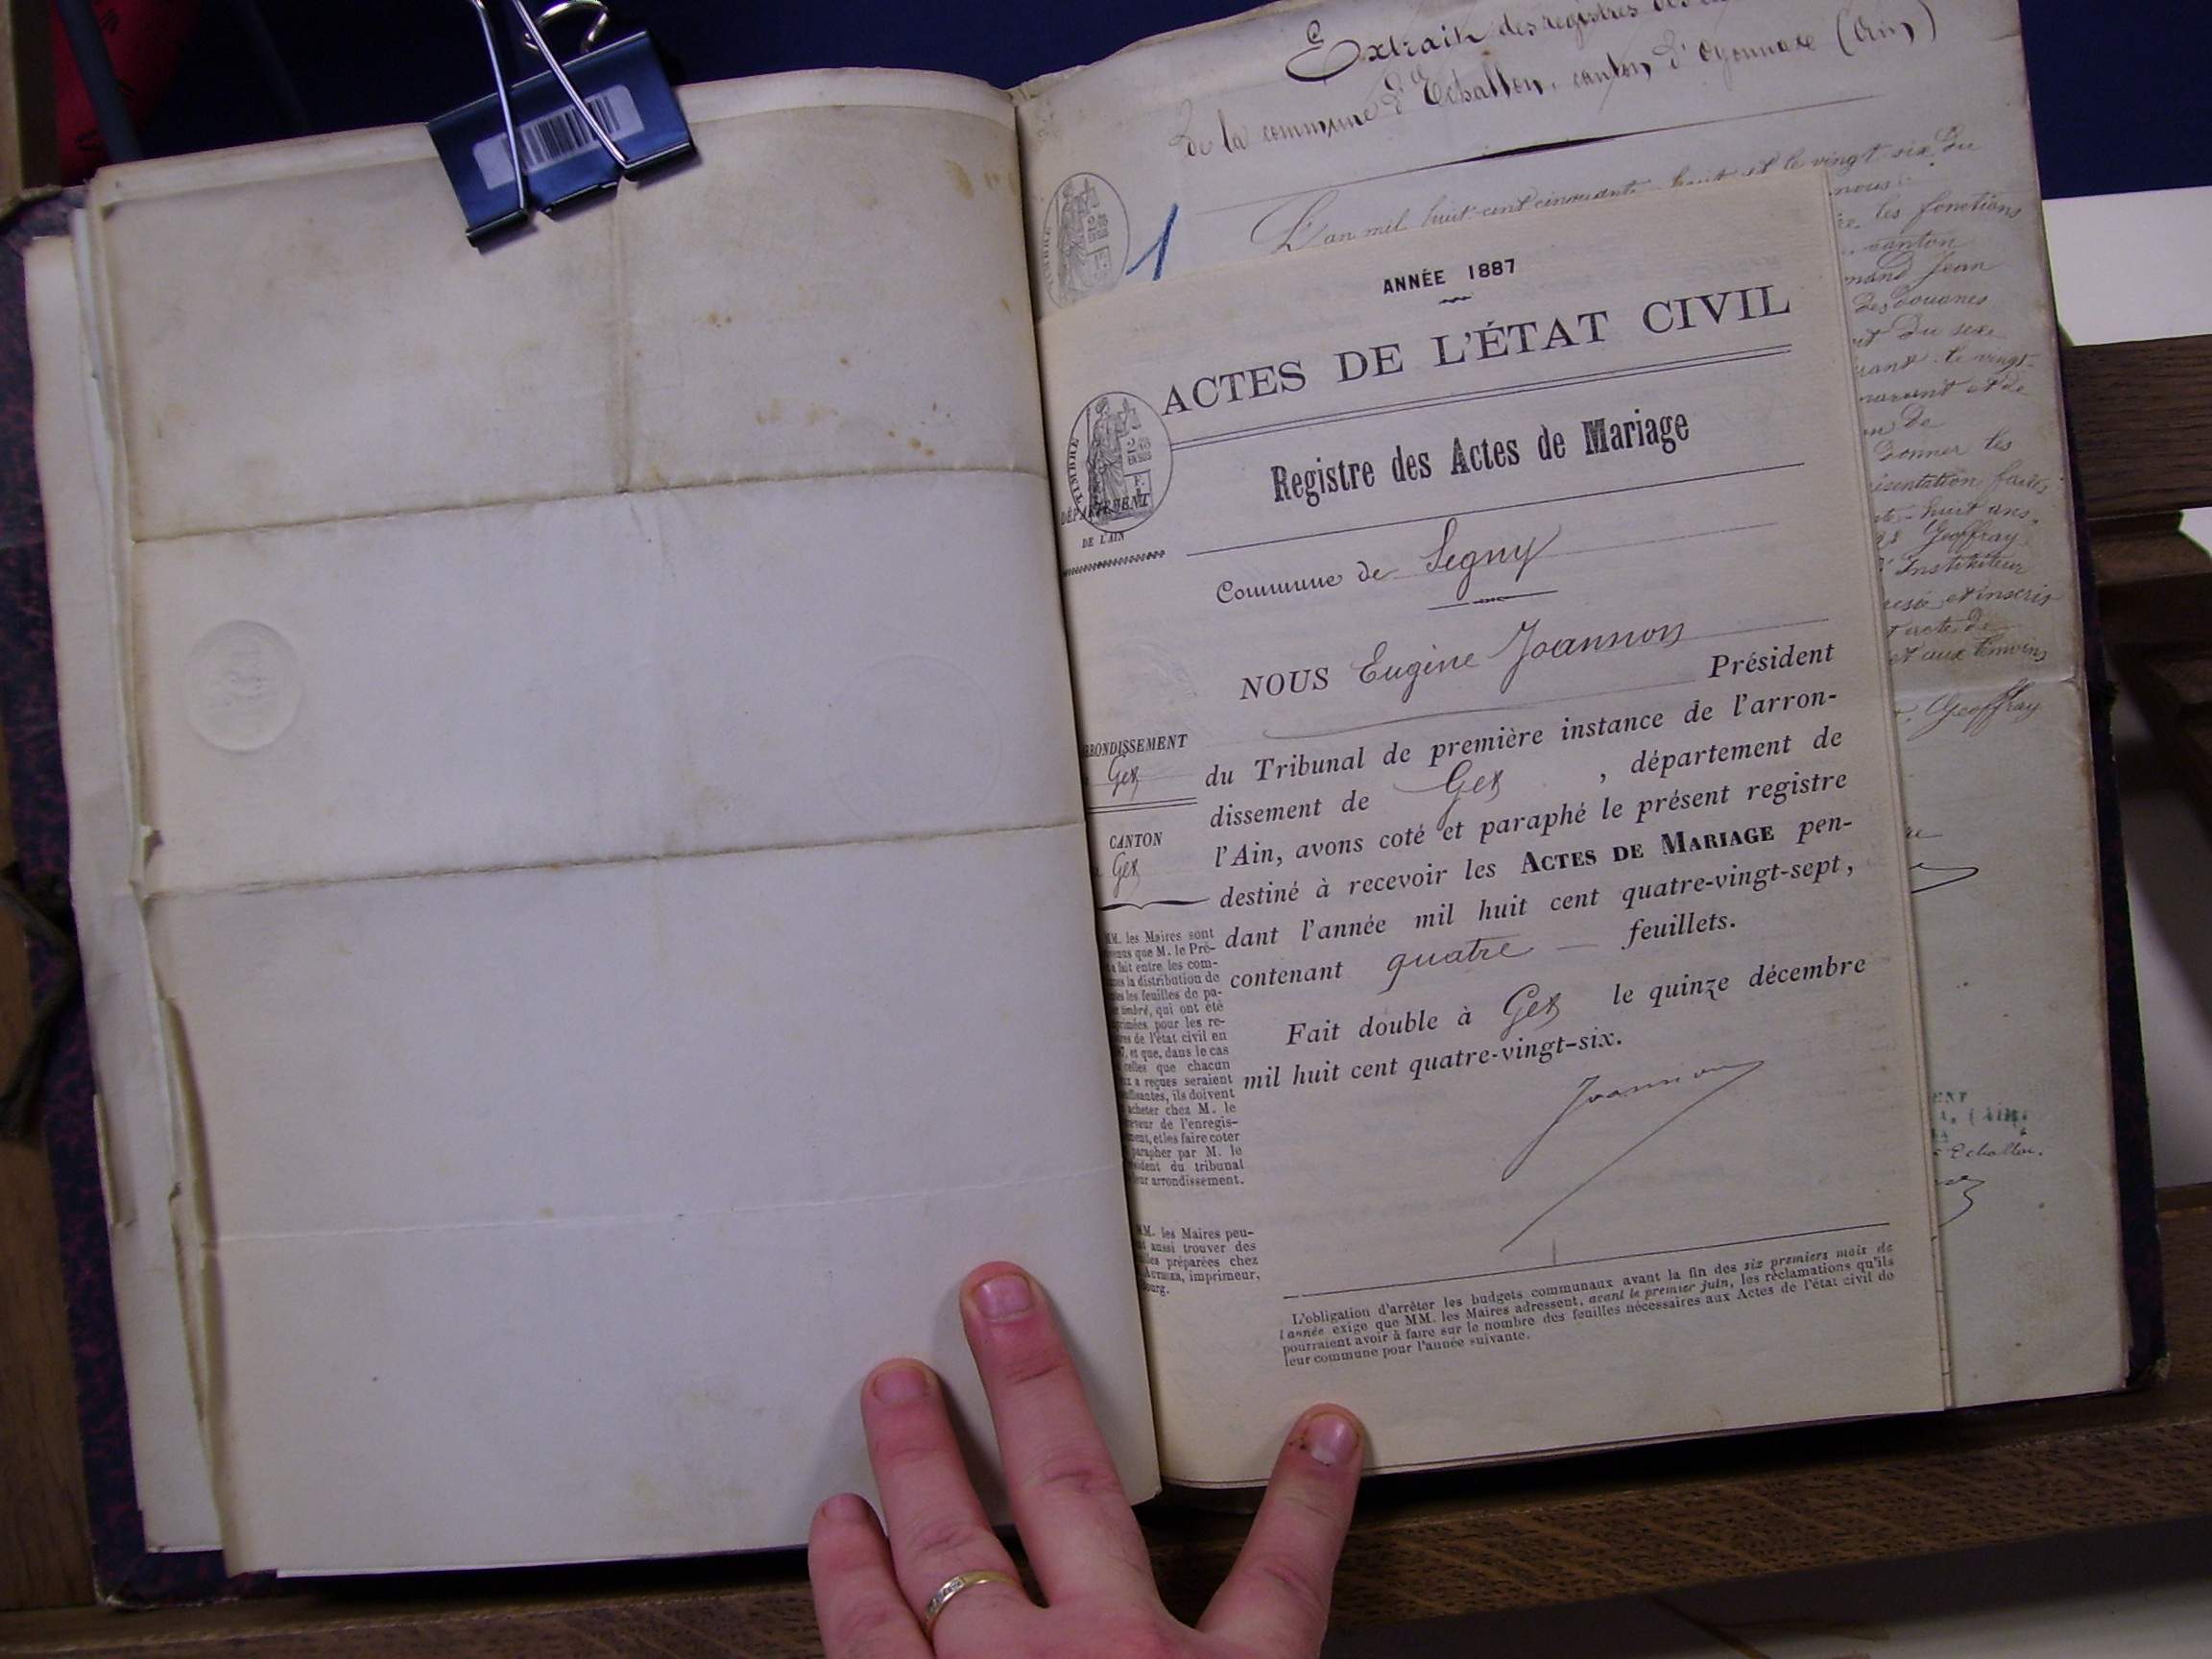 Extrait des registres
de la commune d'Echallon, canton d'Oyonnax (Ain)
L'an mil huit-cent cinquante-huit et le vingt-six du
nous
les fonctions
canton
Jean
des douanes
du sexe
le vingt-
et de
de
donner les
faites
huit ans,
Geoffray
Instituteur
et inscris
acte de
et aux témoins
Geoffray
1
ANNÉE 1887
ACTES DE L'ÉTAT CIVIL
Registre des Actes de Mariage
TIMBRE
2/10
EN SUS
DÉPARTEMENT
DE L'AIN
Commune de Segny
NOUS Eugène Joannon
Président
du Tribunal de première instance de l'arron-
dissement de Gex, département de
l'Ain, avons coté et paraphé le présent registre
destiné à recevoir les ACTES DE MARIAGE pen-
dant l'année mil huit cent quatre-vingt-sept,
contenant quatre — feuillets.
Fait double à Gex le quinze décembre
mil huit cent quatre-vingt-six.
Joannon
RONDISSEMENT
Gex
CANTON
Gex
MM. les Maires sont
venus que M. le Pré-
a fait entre les com-
nes la distribution de
tes les feuilles de pa-
timbré, qui ont été
primées pour les re-
res de l'état civil en
7, et que, dans le cas
celles que chacun
ux a reçues seraient
uffisantes, ils doivent
acheter chez M. le
ceveur de l'enregis-
ment, et les faire coter
parapher par M. le
sident du tribunal
leur arrondissement.
MM. les Maires peu-
t aussi trouver des
lles préparées chez
imprimeur,
ourg.
L'obligation d'arrêter les budgets communaux avant la fin des six premiers mois de
l'année exige que MM. les Maires adressent, avant le premier juin, les réclamations qu'ils
pourraient avoir à faire sur le nombre des feuilles nécessaires aux Actes de l'état civil de
leur commune pour l'année suivante.
(AIN)
Echallon.